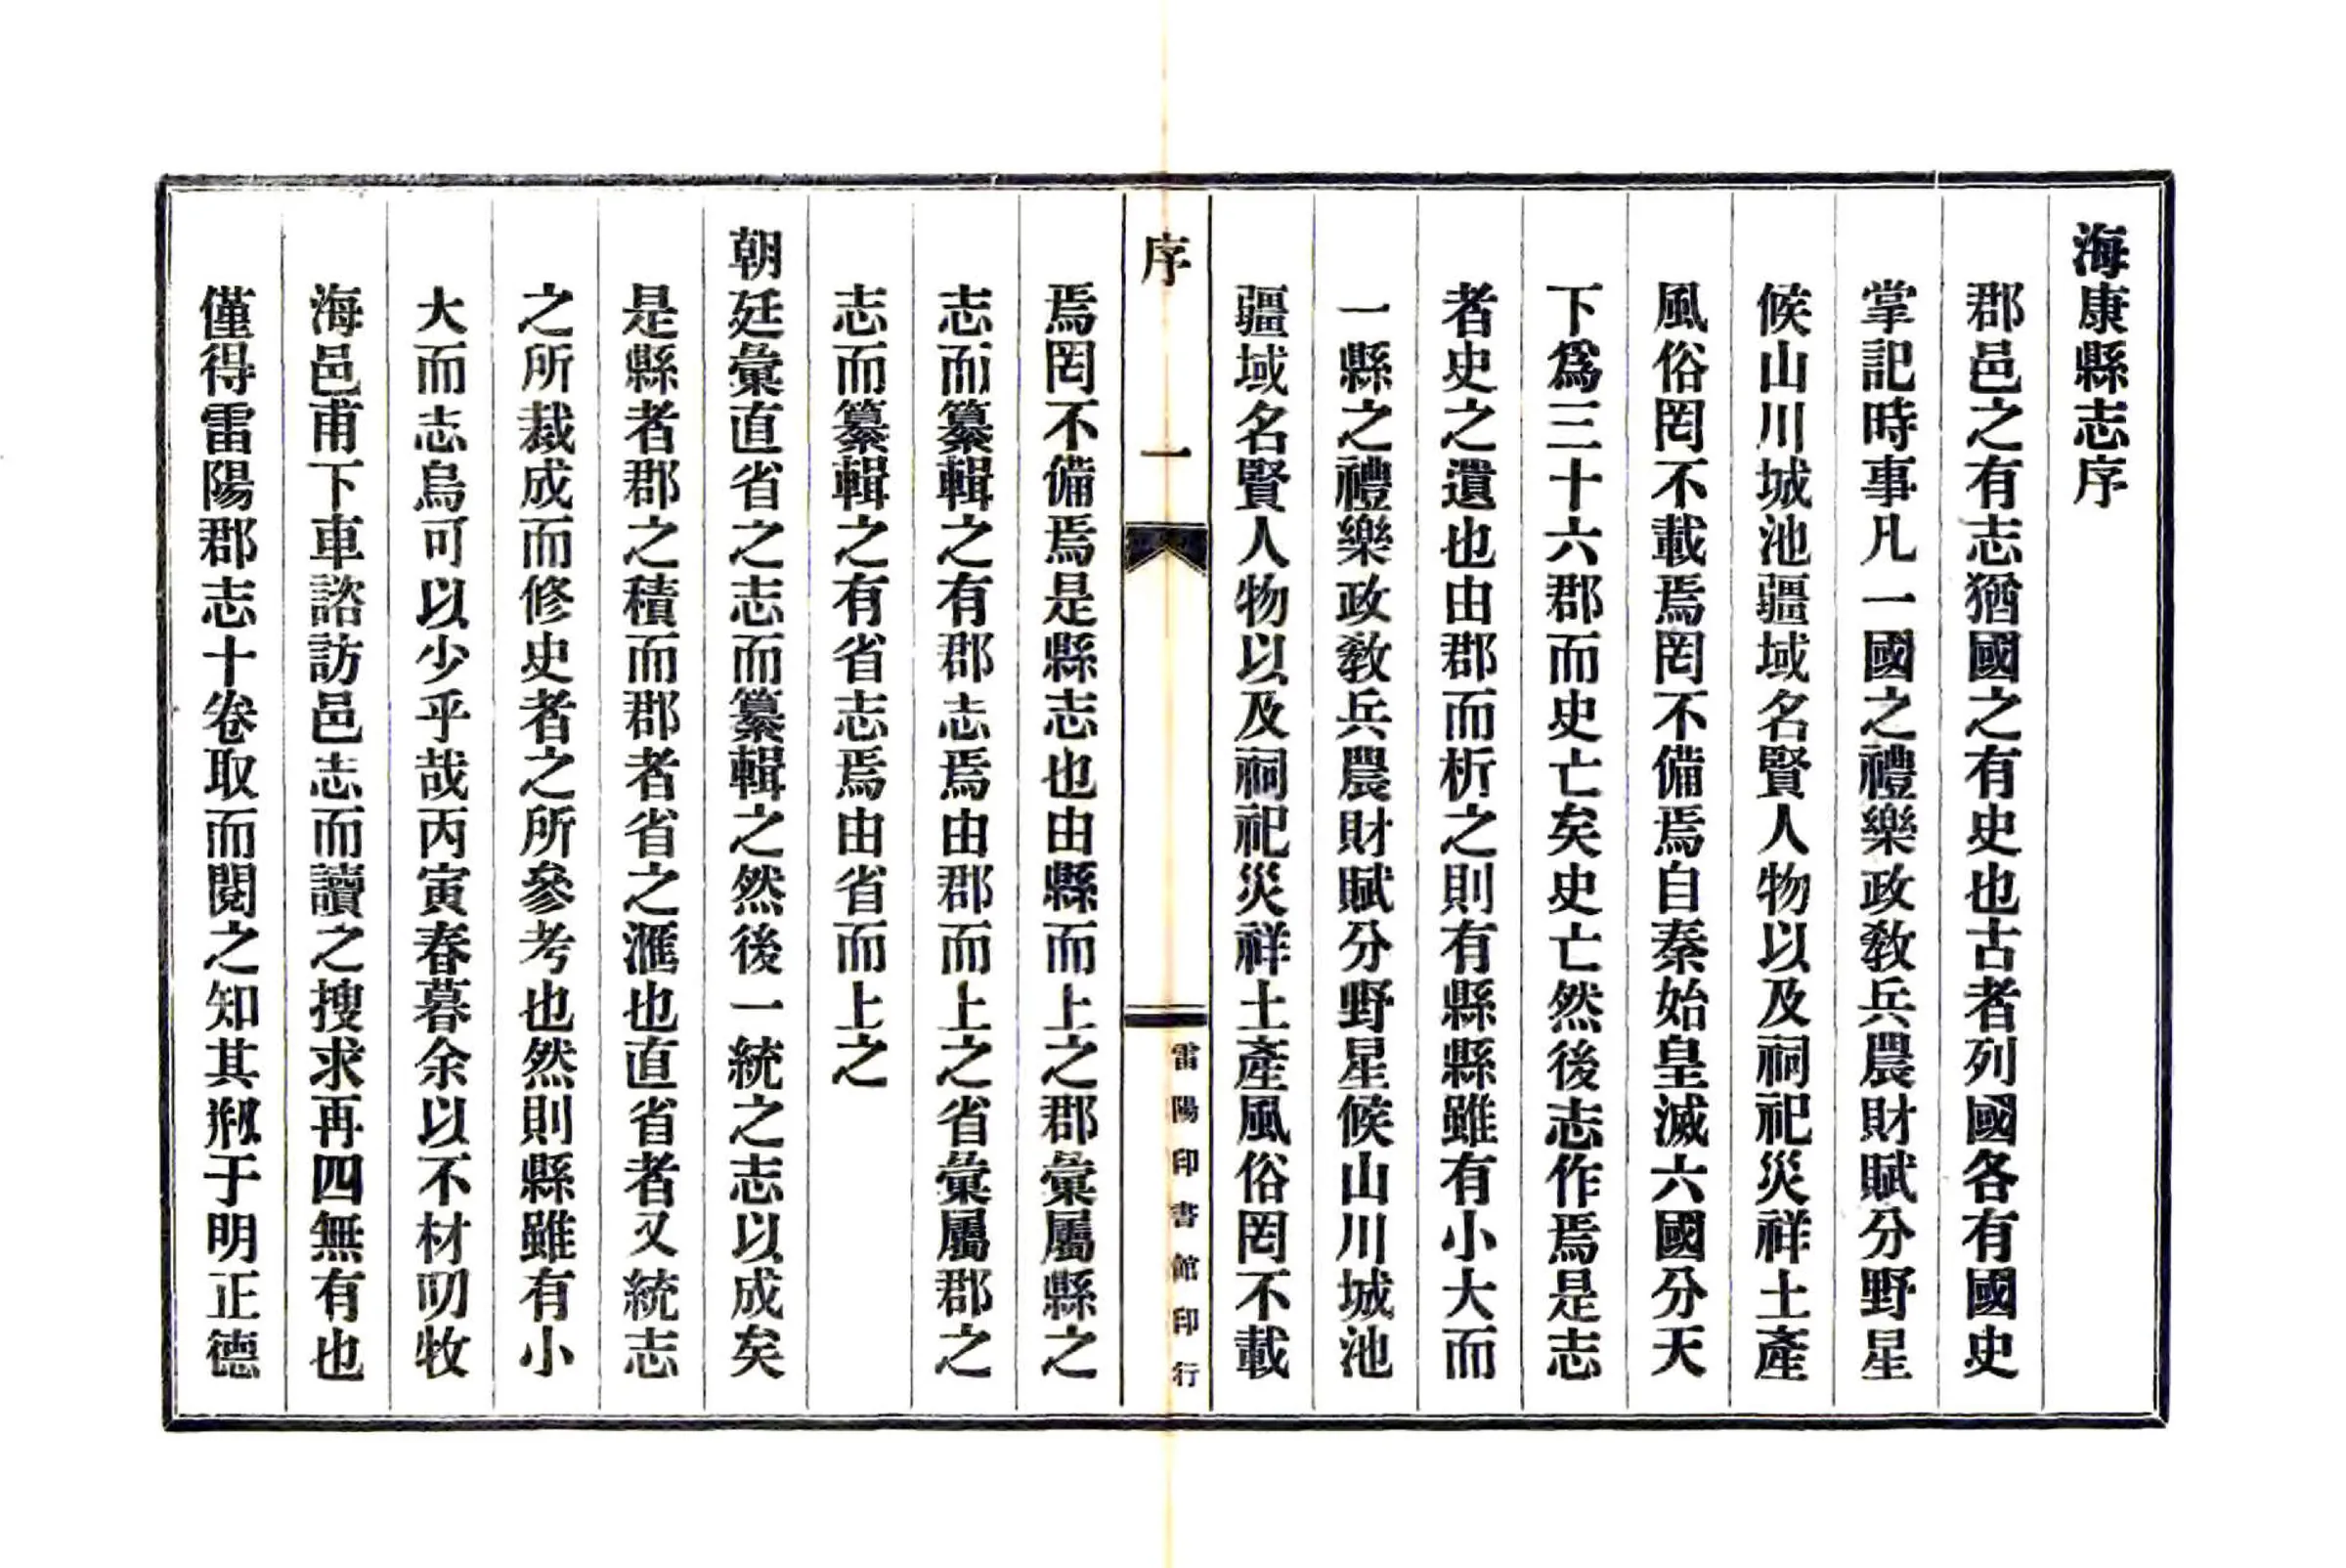 海康縣志序
郡邑之有志猶國之有史也古者列國各有國史
掌記時事凡一國之禮樂政敎兵農財賦分野星
候山川城池疆域名賢人物以及祠祀災祥土產
風俗罔不載焉罔不備焉自秦始皇滅六國分天
下爲三十六郡而史亡矣史亡然後志作焉是志
者史之遺也由郡而析之則有縣縣雖有小大而
一縣之禮樂政敎兵農財賦分野星候山川城池
疆域名賢人物以及祠祀災祥土產風俗罔不載
序 一
雷陽印書館印行
焉罔不備焉是縣志也由縣而上之郡彙屬縣之
志而纂輯之有郡志焉由郡而上之省彙屬郡之
志而纂輯之有省志焉由省而上之
朝廷彙直省之志而纂輯之然後一統之志以成矣
是縣者郡之積而郡者省之滙也直省者又統志
之所裁成而修史者之所參考也然則縣雖有小
大而志烏可以少乎哉丙寅春暮余以不材叨牧
海邑甫下車諮訪邑志而讀之搜求再四無有也
僅得雷陽郡志十卷取而閱之知其剏于明正德